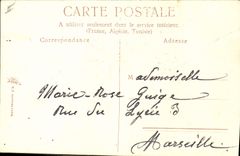 CARTE POSTALE
A utiliser seulement dans le service intérieur
(France, Algérie, Tunisie)
Correspondance
Adresse
Mademoiselle
Marie-Rose
Rue du Lycée 3
Marseille.